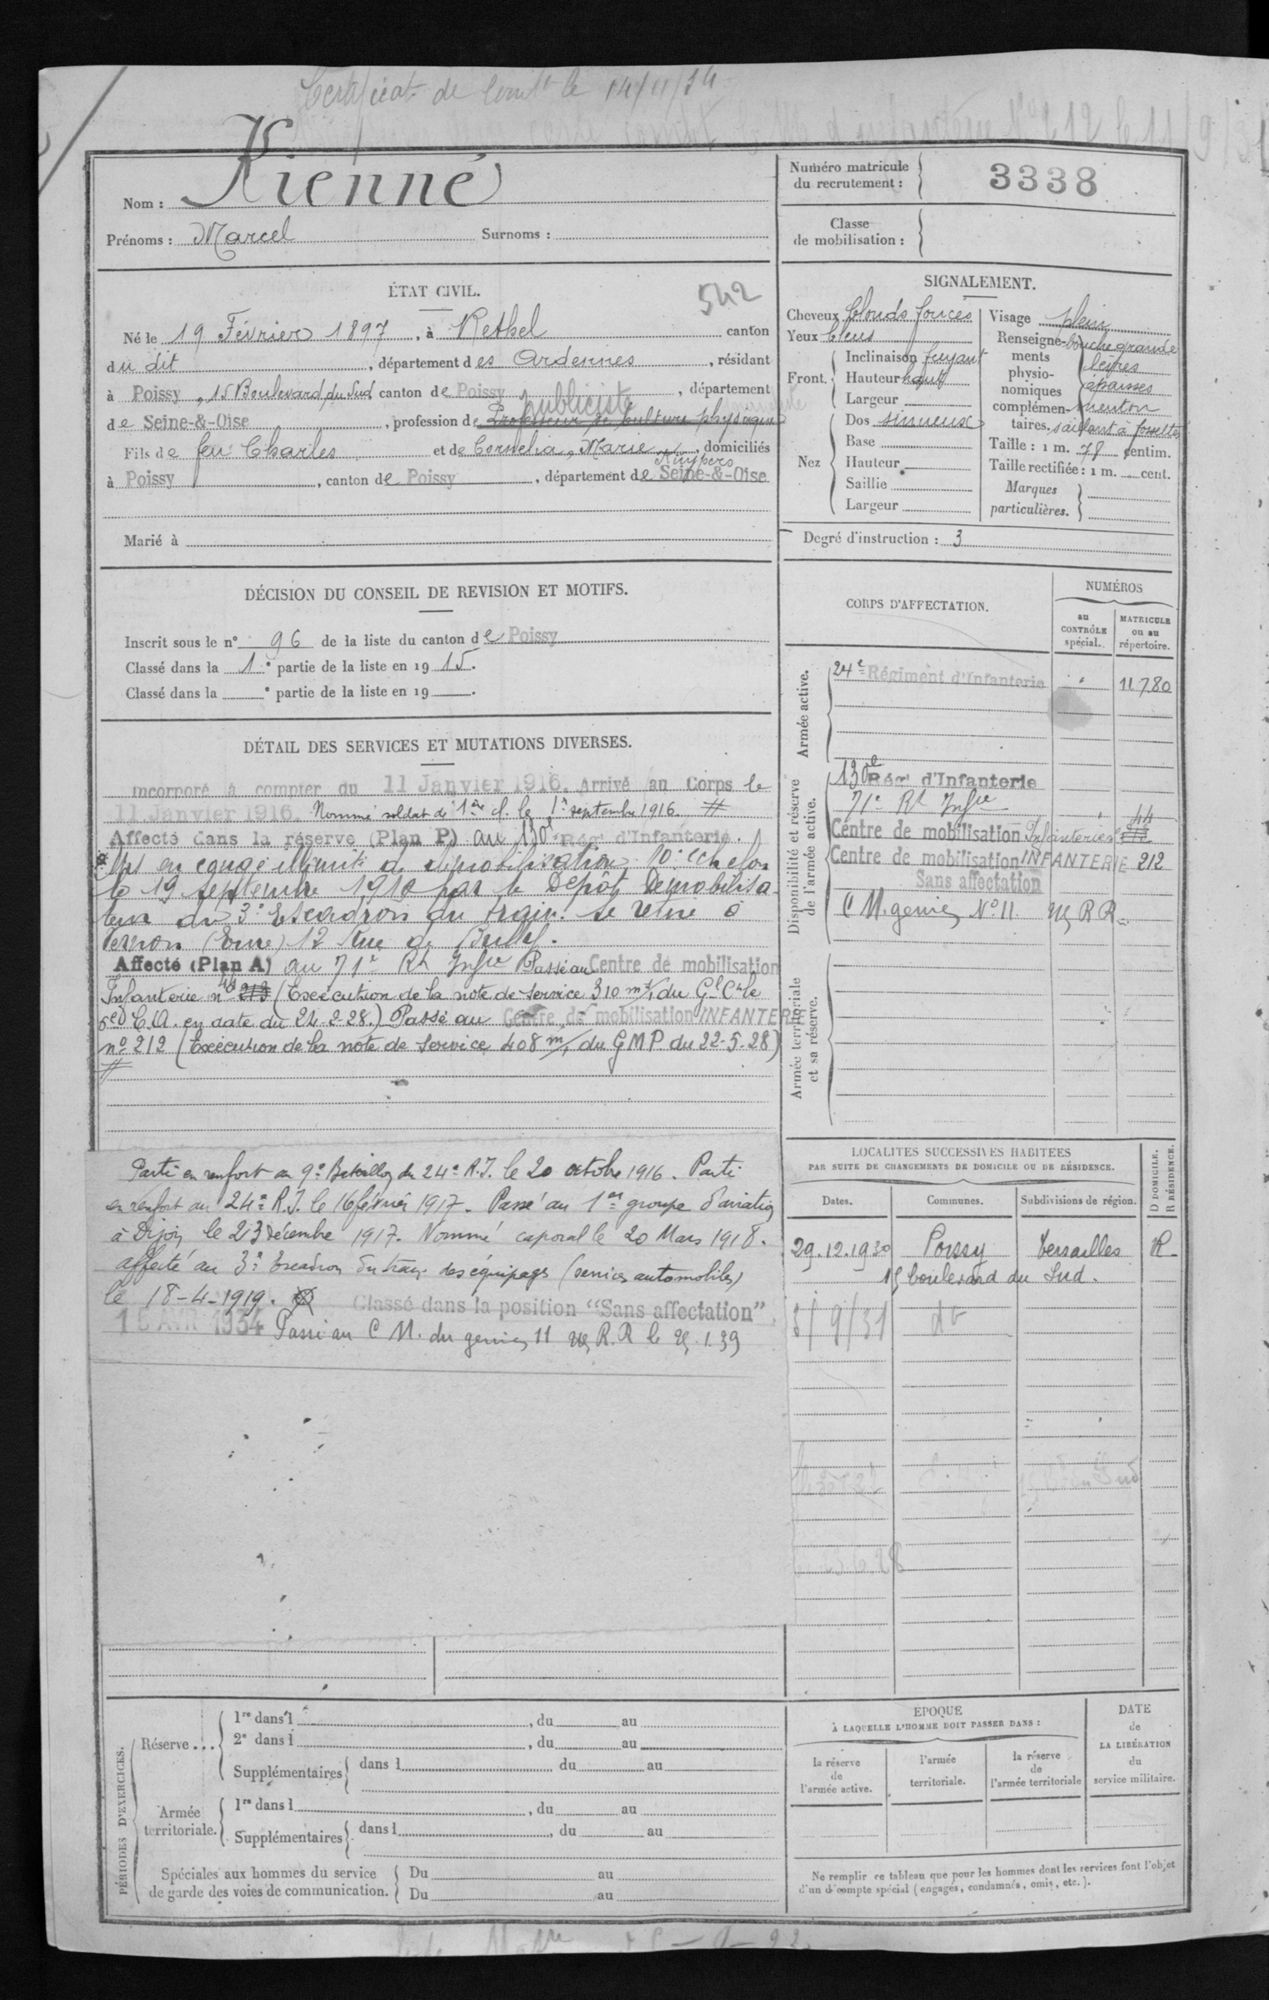 Certificat de le 14/11/34
Nom : Kienné
Prénoms : Marcel Surnoms :
Numéro matricule du recrutement : 3338
Classe de mobilisation :
ÉTAT CIVIL.
542
Né le 19 Février 1897, à Rethel canton
du dit, département des Ardennes, résidant
à Poissy, 15 Boulevard du Sud canton de Poissy, département
publiciste
de Seine-&-Oise, profession de Professeur de culture physique
Fils de feu Charles et de Cornelia, Marie, domiciliés
Kuypers
à Poissy, canton de Poissy, département de Seine-&-Oise
Marié à
SIGNALEMENT.
Cheveux blonds foncés
Yeux bleus
Front. Inclinaison fuyant
Hauteur haut
Largeur
Nez Dos sinueux
Base
Hauteur
Saillie
Largeur
Visage plein
Renseignements physionomiques complémentaires, bouche grande
lèvres
épaisses
menton
saillant à fossette
Taille : 1 m. 78 centim.
Taille rectifiée : 1 m. cent.
Marques particulières.
Degré d'instruction : 3
DÉCISION DU CONSEIL DE REVISION ET MOTIFS.
Inscrit sous le n° 96 de la liste du canton de Poissy
Classé dans la 1e partie de la liste en 1915.
Classé dans la e partie de la liste en 19 .
CORPS D'AFFECTATION.
NUMÉROS
au CONTRÔLE spécial.
MATRICULE ou au répertoire.
Armée active.
24e Régiment d'Infanterie 11780
Disponibilité et réserve de l'armée active.
130e Rég' d'Infanterie
71e Rt Infie
Centre de mobilisation Infanterie 44 213
Centre de mobilisation INFANTERIE 212
Sans affectation
C M. génie N° 11
Armée territoriale et sa réserve.
DÉTAIL DES SERVICES ET MUTATIONS DIVERSES.
Incorporé à compter du 11 Janvier 1916. Arrivé au Corps le
11 Janvier 1916. Nommé soldat de 1ère cl. le 1er septembre 1916. #
Affecté dans la réserve (Plan P) au 130e Rég' d'Infanterie.
Mis en congé illimité de démobilisation 10e échelon
le 19 septembre 1919 par le Dépôt Démobilisa-
teur du 3e Escadron du train. Se retire à
Vernon (Eure) 12 Rue de
Affecté (Plan A) au 71e Rt Infie Passé au Centre de mobilisation
Infanterie n° 44 213 (Exécution de la note de service 310 m/1 du Gl Ct le
5e C.A. en date du 24-2-28.) Passé au Centre de mobilisation INFANTERIE
n° 212 (Exécution de la note de service 408 m/1 du GMP du 22-5-28)
#
Parti en renfort au 9e Bataillon du 24e R.I. le 20 octobre 1916. Parti
en renfort au 24e R.I. le 16 février 1917. Passé au 1er groupe d'aviation
à Dijon le 23 décembre 1917. Nommé caporal le 20 Mars 1918.
Affecté au 3e Escadron du train des équipages (services automobiles)
le 18-4-1919. Classé dans la position "Sans affectation".
1934 Passé au C M. du génie 11 R.R le 1.39
LOCALITÉS SUCCESSIVES HABITÉES
PAR SUITE DE CHANGEMENTS DE DOMICILE OU DE RÉSIDENCE.
Dates. Communes. Subdivisions de région. D DOMICILE. R RÉSIDENCE.
29.12.1930 Poissy Versailles R
15 boulevard du Sud.
/9/31 dt
PÉRIODES D'EXERCICES.
Réserve... 1re dans l , du au
2e dans l , du au
Supplémentaires dans l du au
Armée territoriale. 1re dans l , du au
Supplémentaires dans l , du au
Spéciales aux hommes du service de garde des voies de communication. Du au
Du au
EPOQUE
À LAQUELLE L'HOMME DOIT PASSER DANS :
la réserve de l'armée active.
l'armée territoriale.
la réserve de l'armée territoriale
DATE de LA LIBÉRATION du service militaire.
Ne remplir ce tableau que pour les hommes dont les services font l'objet
d'un décompte spécial (engagés, condamnés, omis, etc.).